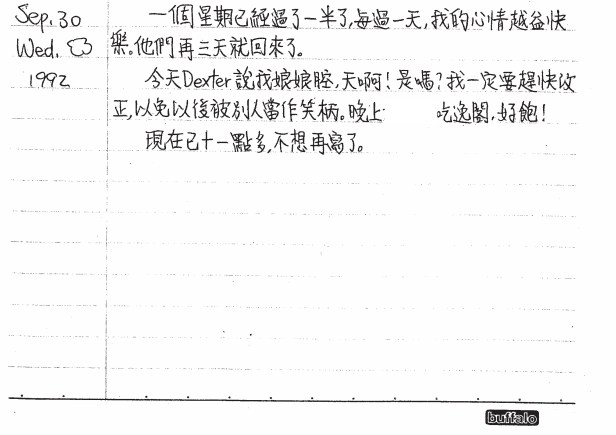 Sep. 30
Wed.
1992
一個星期已經過了一半了,每過一天,我的心情越益快
樂。他們再三天就回來了。
今天Dexter說我娘娘腔,天啊!是嗎?我一定要趕快改
正,以免以後被別人當作笑柄。晚上 吃逸園,好飽!
現在已十一點多,不想再寫了。
buffalo